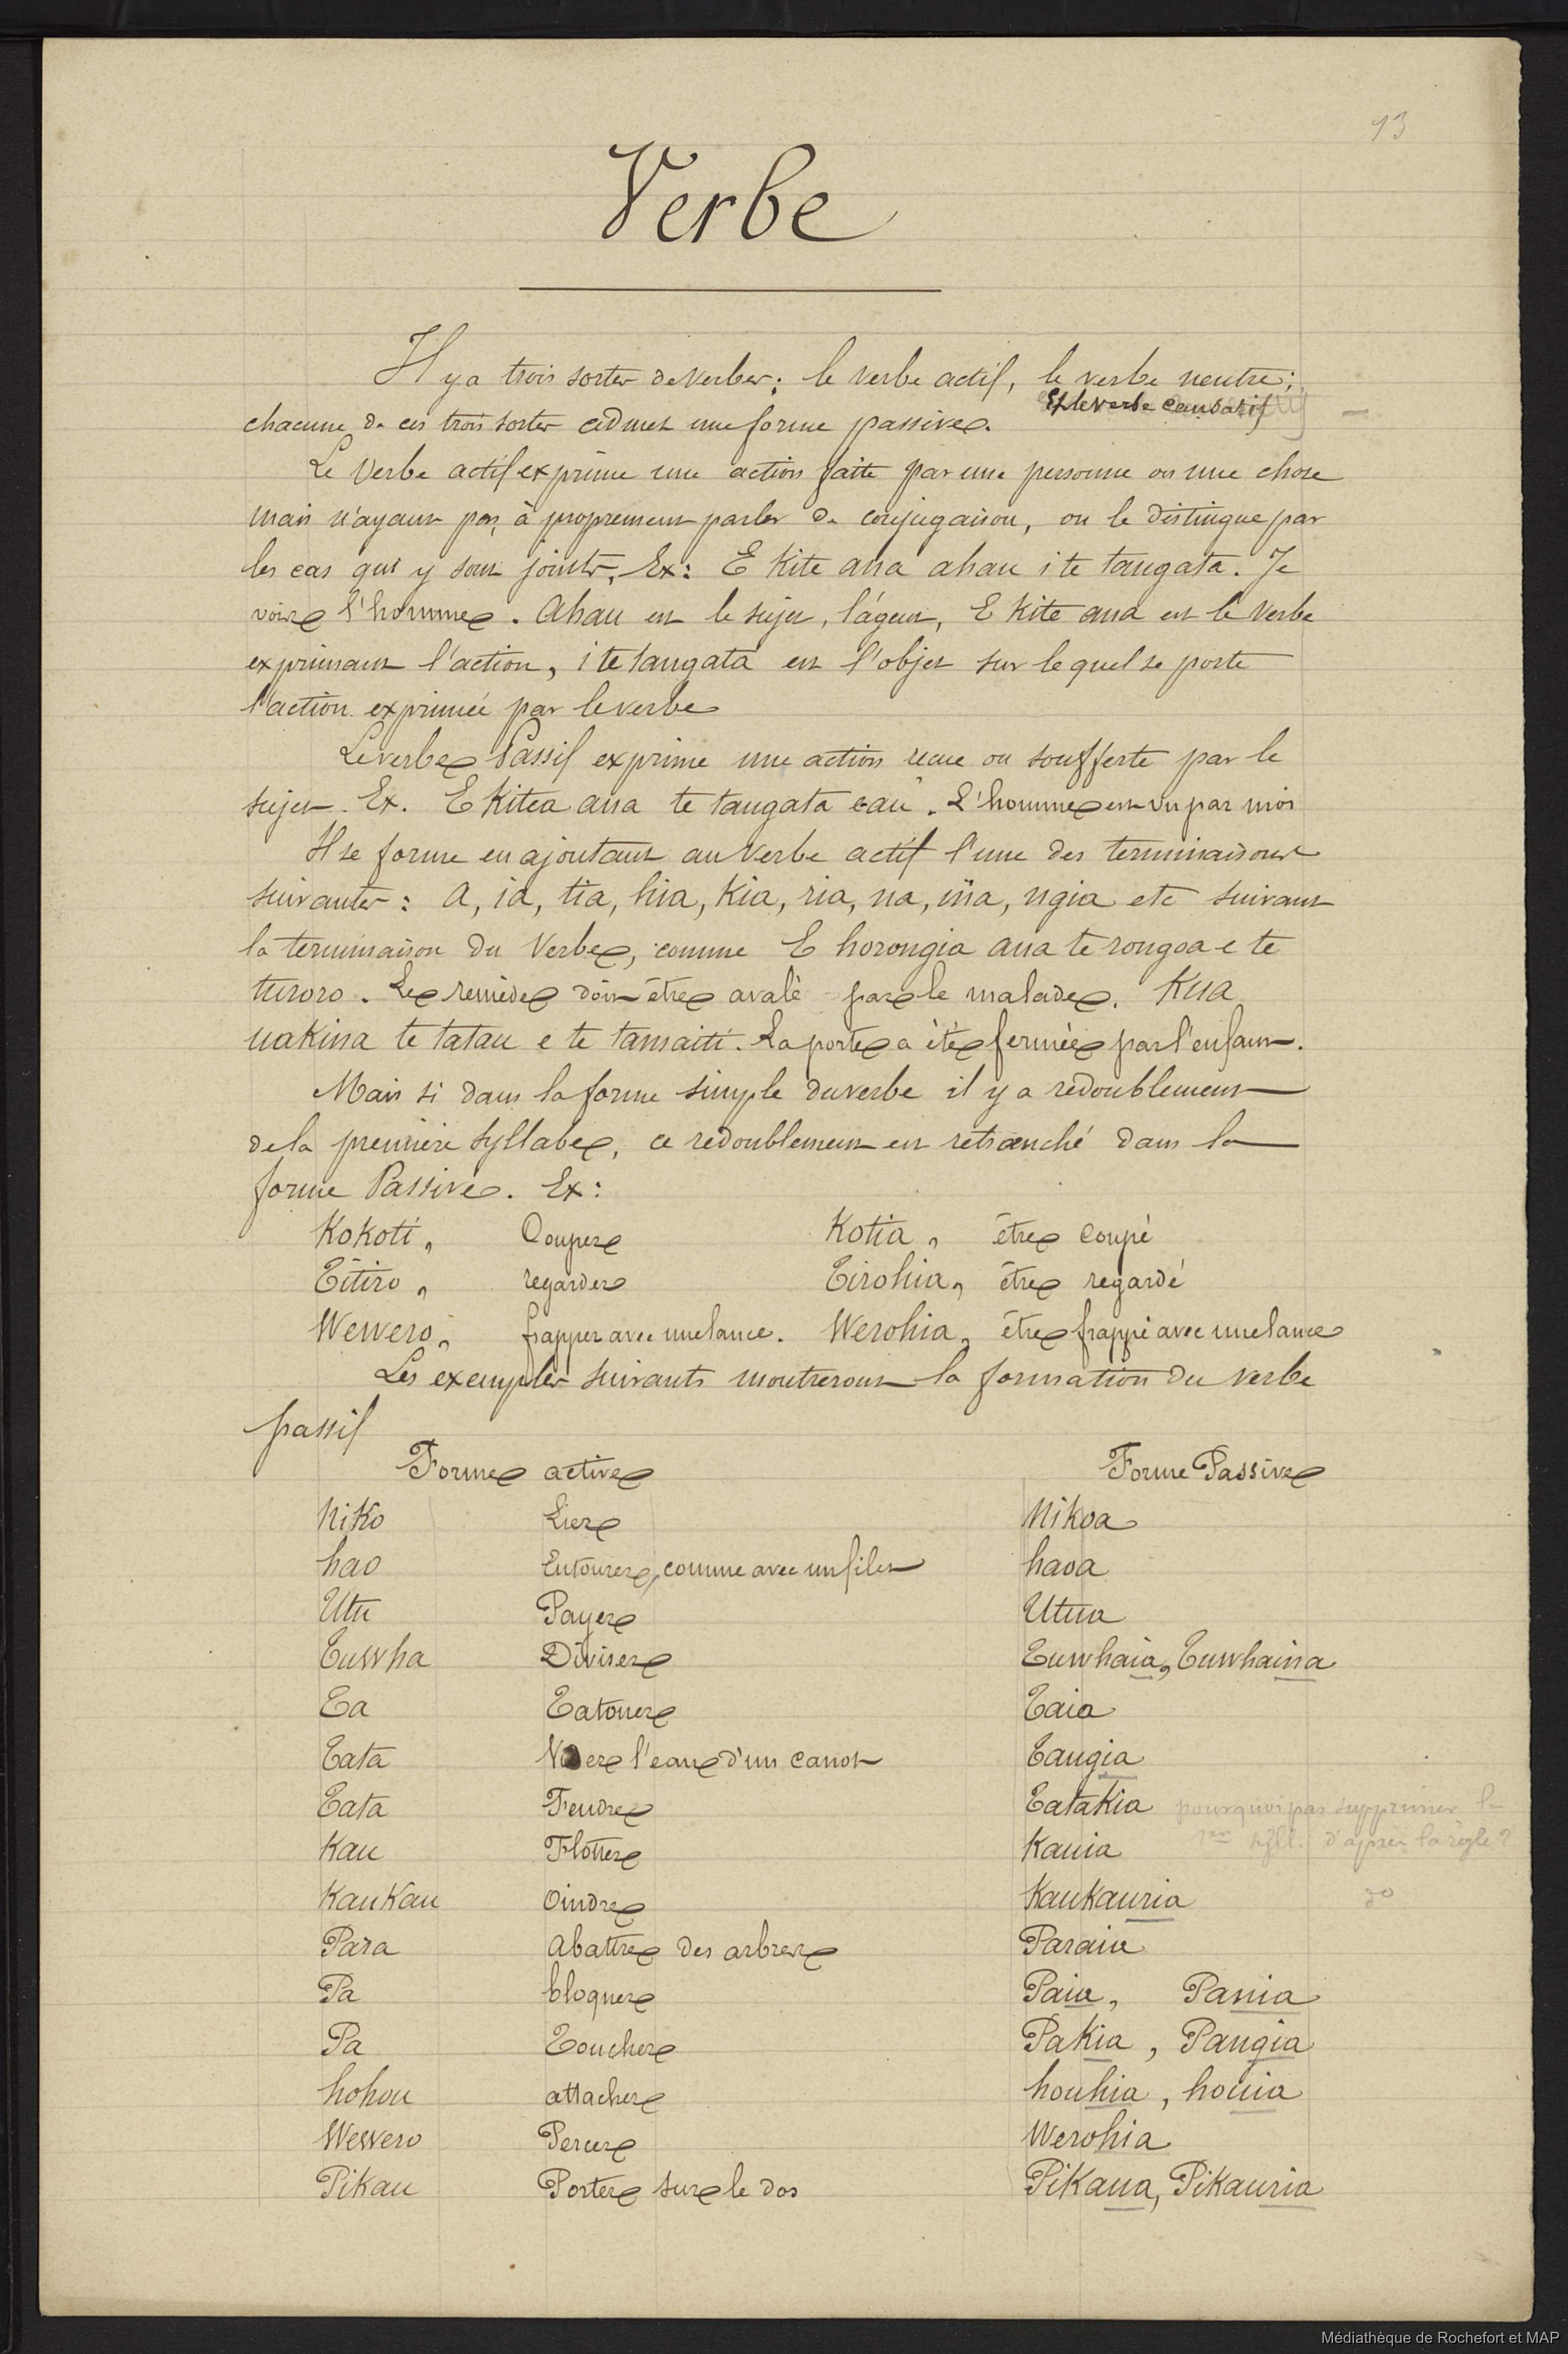 13
Verbe
Il y a trois sortes de verbes: le verbe actif, le verbe neutre;
Et le verbe causatif
chacune de ces trois sortes admet une forme passive.
Le Verbe actif exprime une action faite par une personne ou une chose
mais n'ayant pas à proprement parler de conjugaison, on le distingue par
les cas qui y sont joints, Ex: E Kite ana ahau i te tangata. Je
vois l'homme. Ahau est le sujet, l'agent, E Kite ana est le Verbe
exprimant l'action, i te tangata est l'objet sur lequel se porte
l'action exprimée par le verbe
Le verbe Passif exprime une action reçue ou soufferte par le
sujet. Ex. E Kitea ana te tangata eau. L'homme est vu par moi
Il se forme en ajoutant au Verbe actif l'une des terminaisons
suivantes: a, ia, tia, hia, Kia, ria, na, ina, ngia etc suivant
la terminaison du Verbe, comme E horongia ana te rongoa e te
turoro. Le remède doit être avalé par le malade. Kua
uakina te tatau e te tamaiti. La porte a été fermée par l'enfant.
Mais si dans la forme simple du verbe il y a redoublement
de la première syllabe, ce redoublement est retranché dans la
forme Passive. Ex:
Kokoti, Couper Kotia, être coupé
Titiro, regarder Tirohia, être regardé
Wewero, frapper avec une lance. Werohia, être frappé avec une lance
Les exemples suivants montreront la formation du verbe
passif
Forme active Forme Passive
Niko Lier Nikoa
hao Entourer, comme avec un filet haoa
Utu Payer Utua
Tuwha Diviser Tuwhaia, Tuwhaina
Ta Tatouer Taia
Tata Vider l'eau d'un canot Tangia
Tata Fendre Tatakia pourquoi pas supprimer la
1ère syll. d'après la règle?
Kau Flotter Kauia
KauKau Oindre Kaukauria do
Para Abattre des arbres Paraia
Pa bloquer Paia, Pania
Pa Toucher Pakia, Pangia
hohou attacher houhia, houia
Wewero Percer Werohia
Pikau Porter sur le dos Pikaua, Pikauria
Médiathèque de Rochefort et MAP